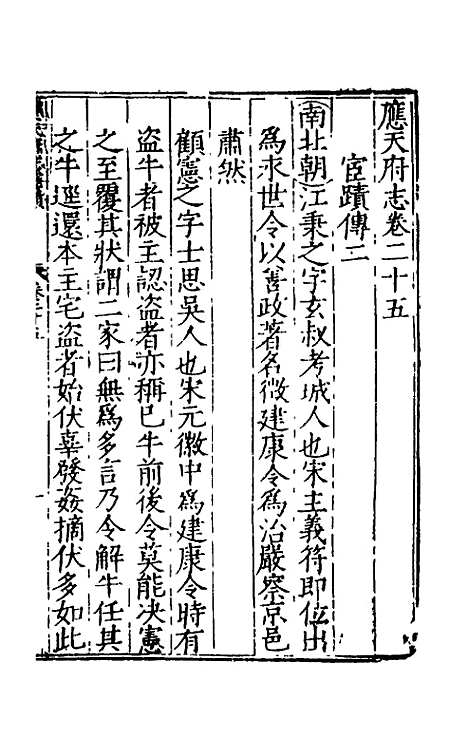 應天府志卷二十五
宦蹟傳二
南北朝江秉之字玄叔考城人也宋主義符即位出
為永世令以善政著名徵建康令為治嚴察京邑
肅然
顧憲之字士思吳人也宋元徽中為建康令時有
盜牛者被主認盜者亦稱已牛前後令莫能决憲
之至覆其狀謂二家曰無為多言乃令解牛任其
之牛逕還本主宅盜者始伏辜發姦摘伏多如此